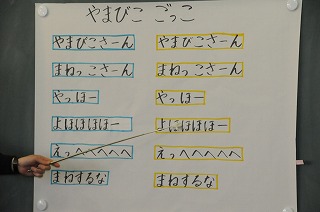 やまびこ ごっこ
やまびこさーん やまびこさーん
まねっこさーん まねっこさーん
やっほー やっほー
よほほほほー よほほほほー
えっへへへへ えっへへへへ
まねするな まねするな